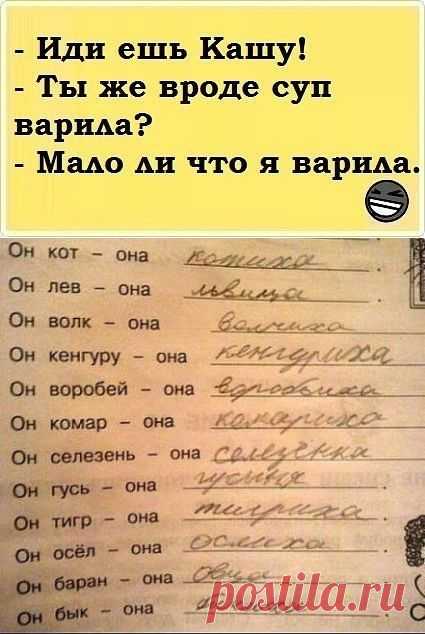 - Иди ешь Кашу!
- Ты же вроде суп
варила?
- Мало ли что я варила.
Он кот – она котиха.
Он лев – она львица.
Он волк – она волчиха
Он кенгуру – она кенгуриха
Он воробей – она воробьиха
Он комар – она комариха
Он селезень – она селезёнка
Он гусь – она гусиня
Он тигр – она тигриха.
Он осёл – она ослиха.
Он баран – она овца
Он бык – она
postila.ru